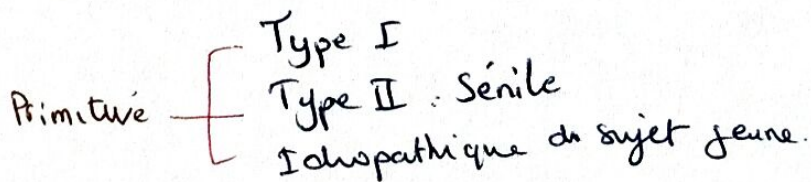 Type I
Primitive
Type II : Sénile
Idiopathique du sujet jeune.